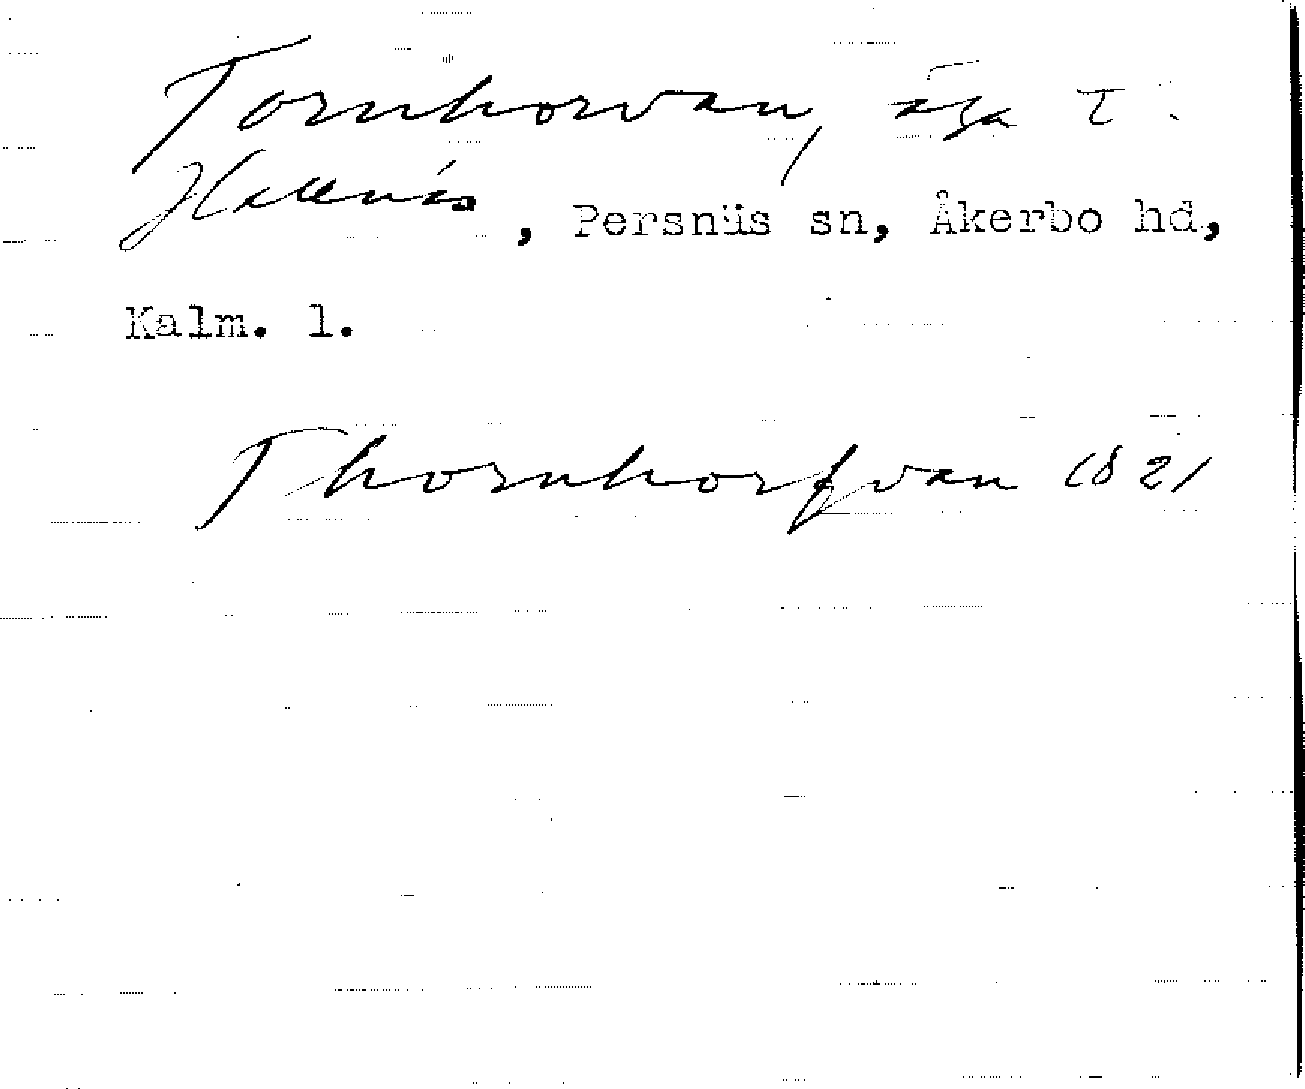 Tornhorvan, äga t.
Hallnäs, Persnäs sn, Åkerbo hd,
Kalm. l.
Thornhorfvan 1821